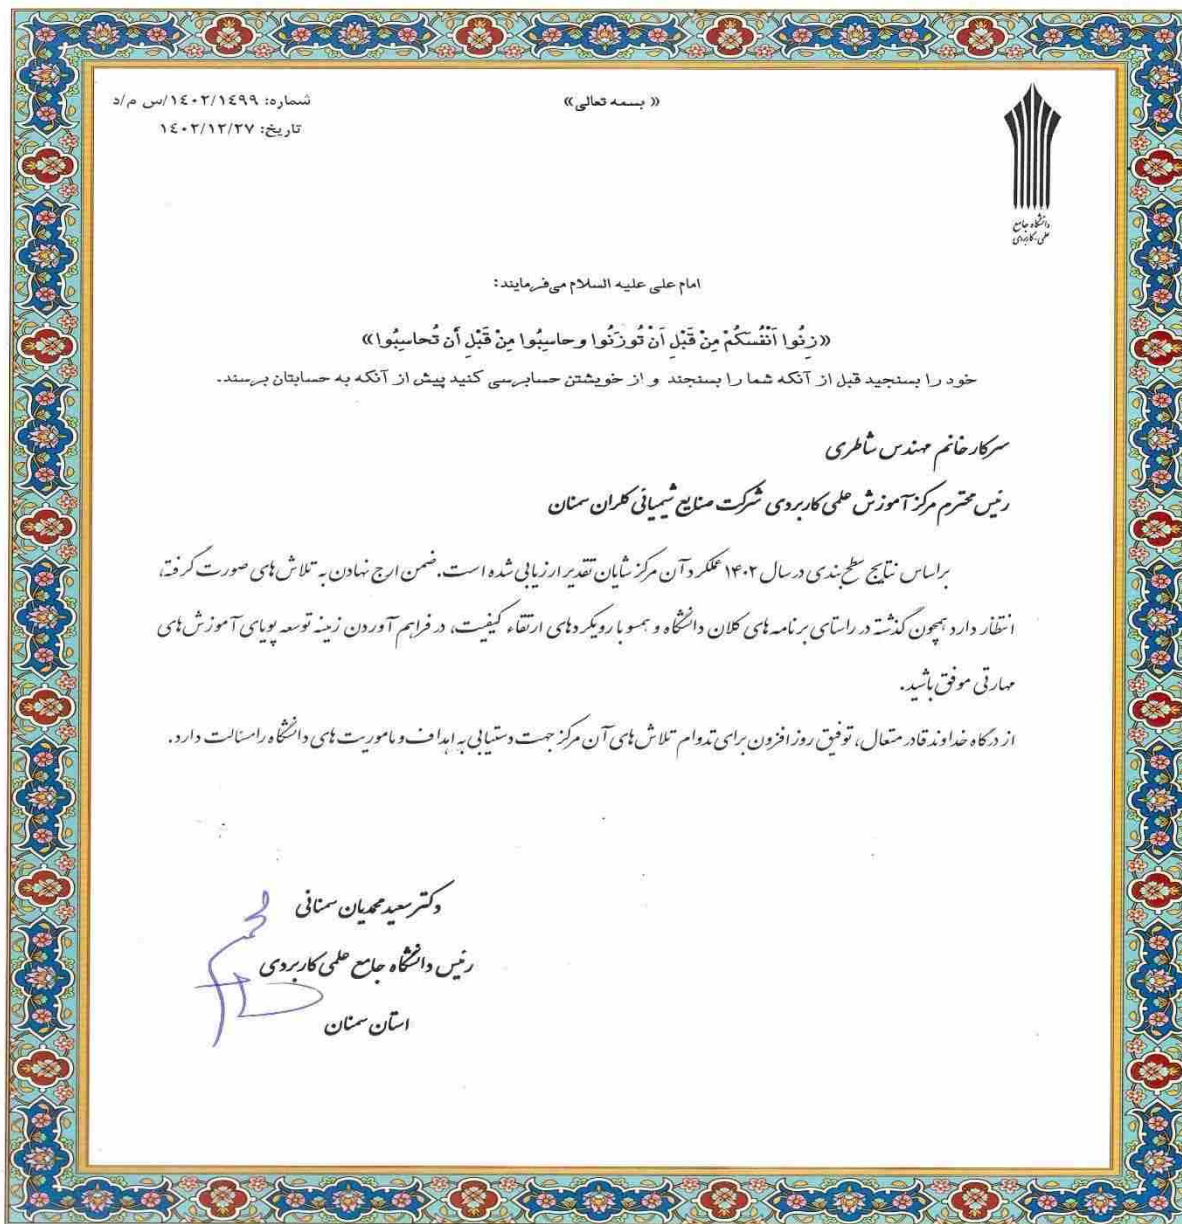 « بسمه تعالی»
شماره: ۱٤۰۲/۱٤۹۹/س م/د
تاریخ: ۱٤۰۲/۱۲/۲۷
دانشگاه جامع
علمی-کاربردی
امام علی علیه السلام می‌فرمایند:
«زِنُوا اَنْفُسَکُمْ مِنْ قَبْلِ اَنْ تُوزَنُوا وحاسِبُوا مِنْ قَبْلِ أَن تُحاسِبُوا»
خود را بسنجید قبل از آنکه شما را بسنجند و از خویشتن حسابرسی کنید پیش از آنکه به حسابتان برسند.
سرکار خانم مهندس شاطری
رئیس محترم مرکز آموزش علمی کاربردی شرکت صنایع شیمیائی کلران سمنان
براساس نتایج سطح بندی در سال ۱۴۰۲ عملکرد آن مرکز شایان تقدیر ارزیابی شده است. ضمن ارج نهادن به تلاش های صورت گرفته،
انتظار دارد همچون گذشته در راستای برنامه های کلان دانشگاه و همسو با رویکردهای ارتقاء کیفیت، در فراهم آوردن زمینه توسعه پویای آموزش های
مهارتی موفق باشید.
از درگاه خداوند قادر متعال، توفیق روز افزون برای تداوم تلاش های آن مرکز جهت دستیابی به اهداف و ماموریت های دانشگاه را مسالت دارد.
دکتر سعید محمدیان سمنانی
رئیس دانشگاه جامع علمی کاربردی
استان سمنان